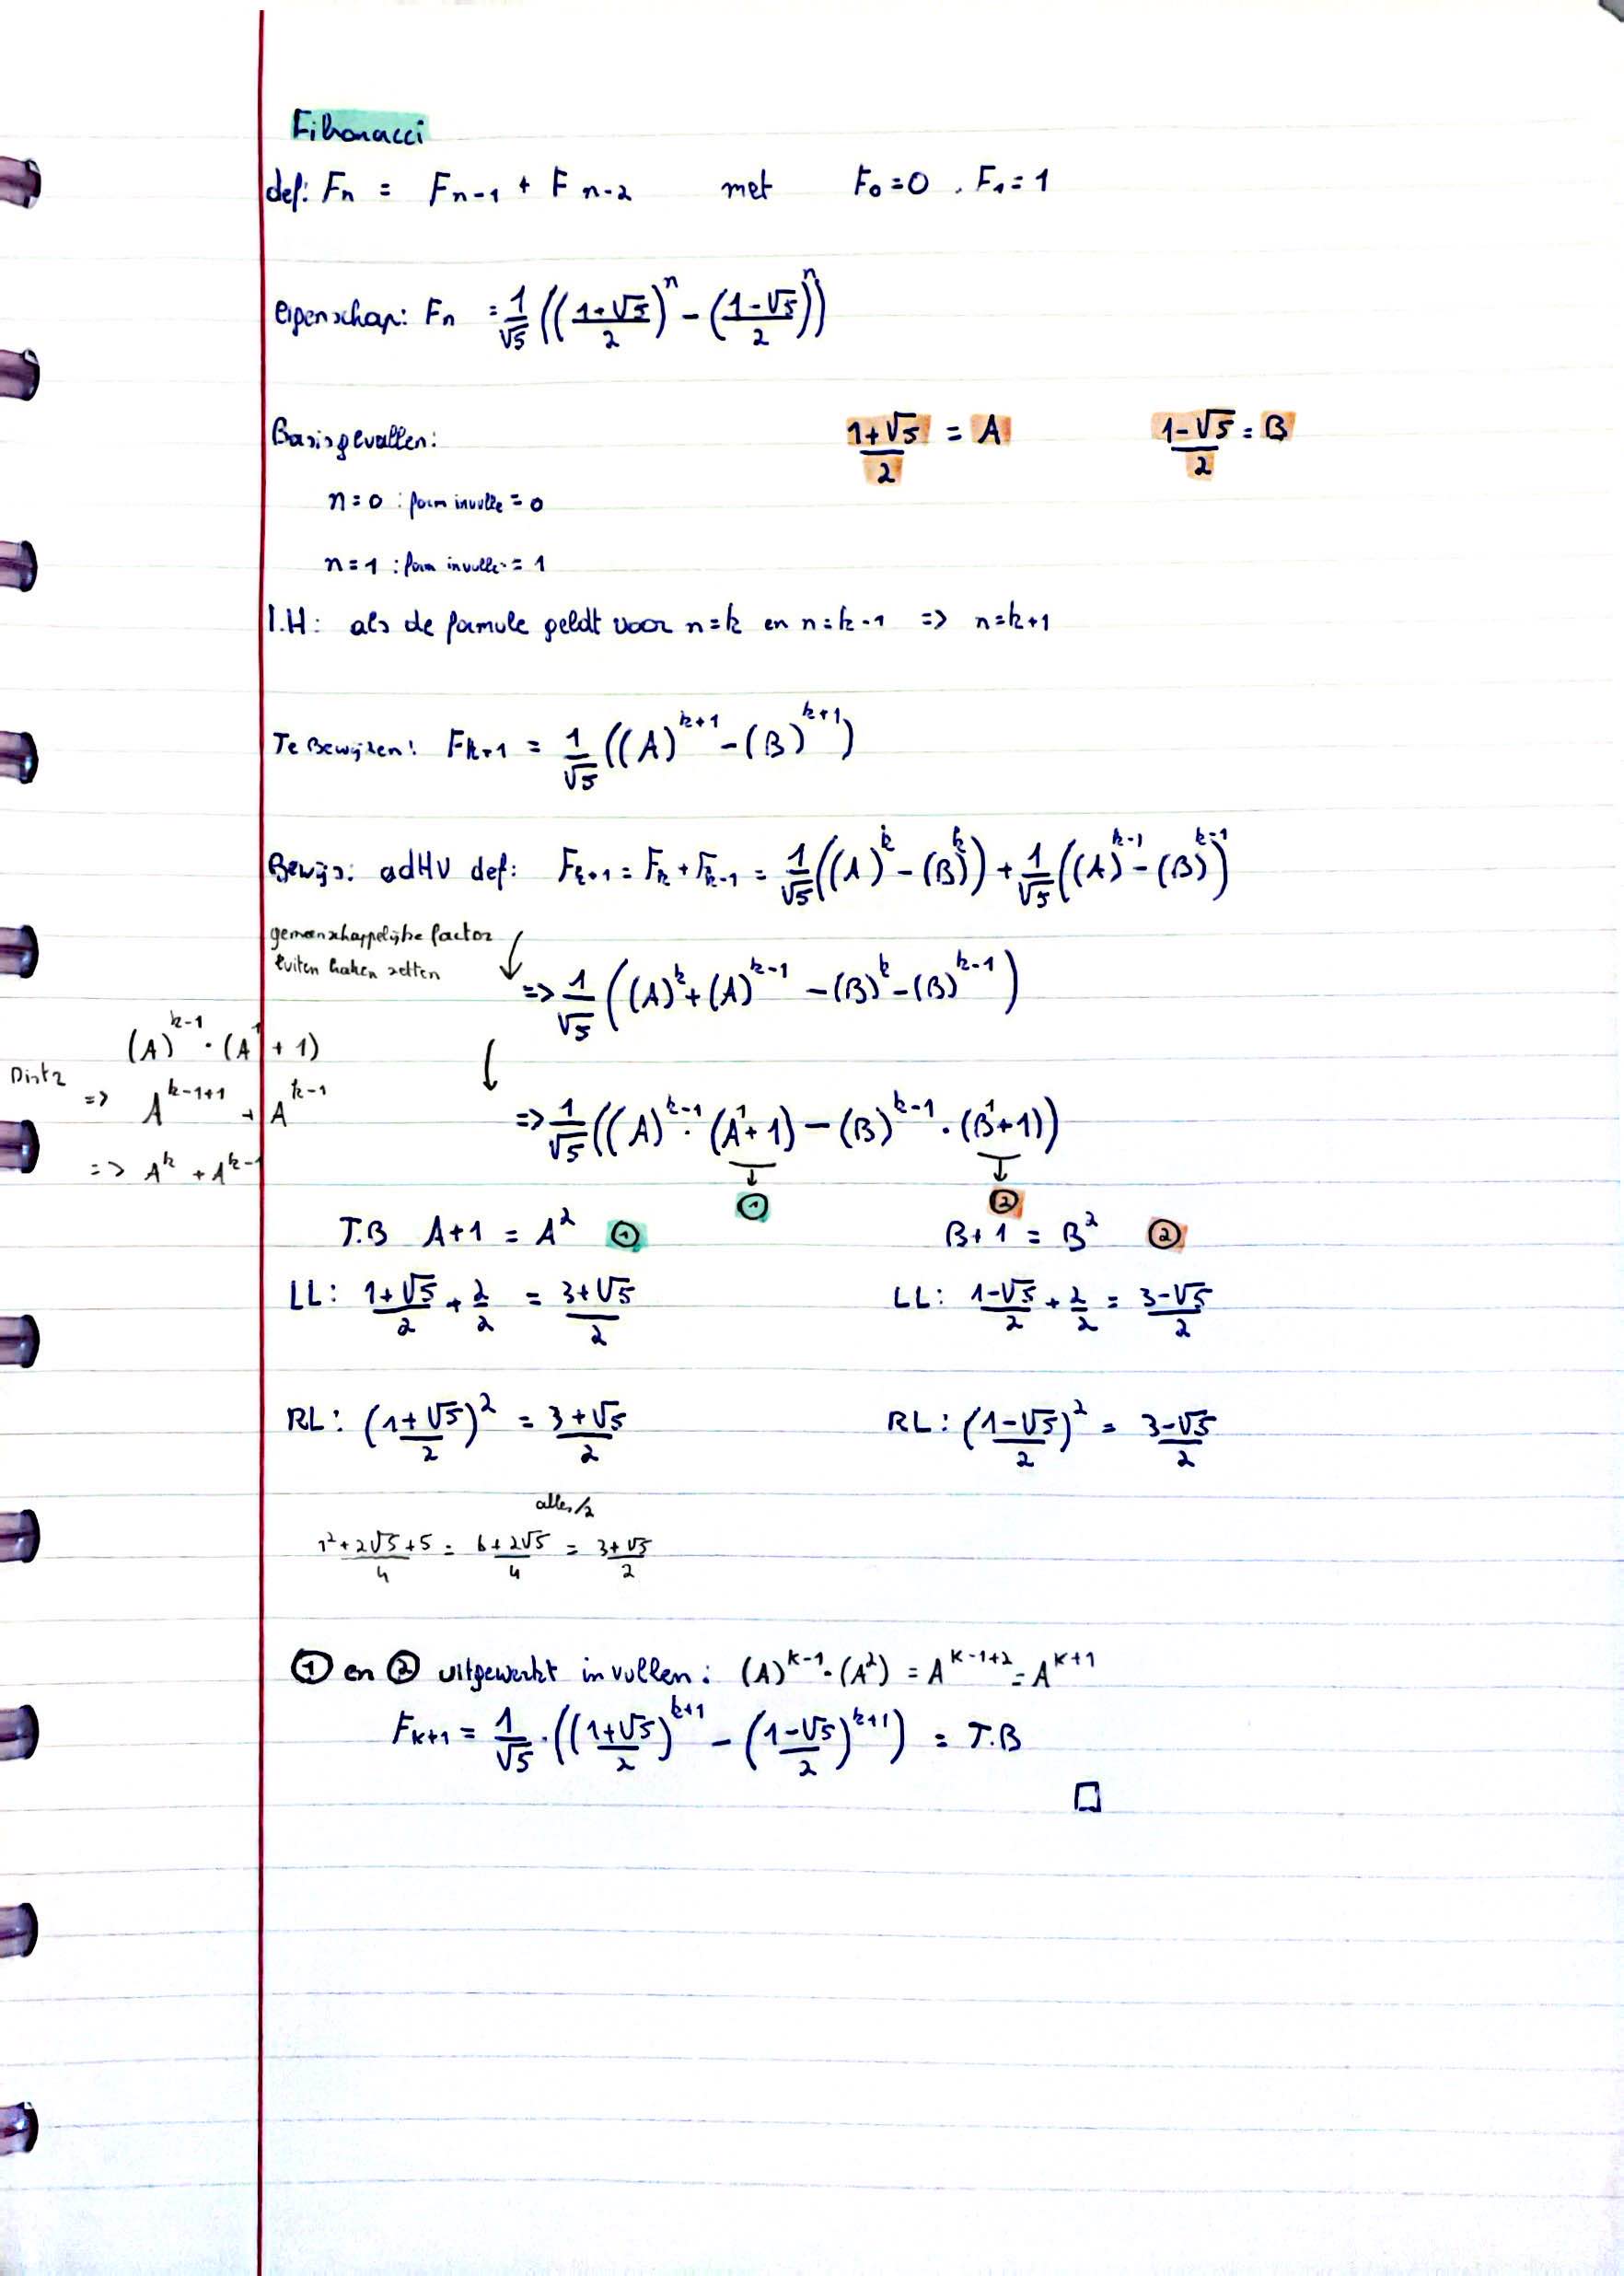 Fibonacci
def: Fn = Fn-1 + F n-2 met F₀=0 , F₁=1
eigenschap: Fn = 1/√5 (((1+√5)/2)^n - ((1-√5)/2)^n)
Basisgevallen: (1+√5)/2 = A (1-√5)/2 = B
n=0 : form invulle = 0
n=1 : form invulle = 1
I.H: als de formule geldt voor n=k en n=k-1 => n=k+1
Te Bewijzen: Fk+1 = 1/√5 ((A)^k+1 - (B)^k+1)
Bewijs: adHV def: Fk+1 = Fk + Fk-1 = 1/√5 ((A)^k - (B)^k) + 1/√5 ((A)^k-1 - (B)^k-1)
gemeenschappelijke factor
buiten haken zetten
=> 1/√5 ((A)^k + (A)^k-1 - (B)^k - (B)^k-1)
(A)^k-1 · (A^1 + 1)
=> A^k-1+1 + A^k-1
=> A^k + A^k-1
=> 1/√5 ((A)^k-1 · (A^1 + 1) - (B)^k-1 · (B^1 + 1))
① ②
T.B A+1 = A² ① B+1 = B² ②
LL: (1+√5)/2 + 2/2 = (3+√5)/2 LL: (1-√5)/2 + 2/2 = (3-√5)/2
RL: ((1+√5)/2)² = (3+√5)/2 RL: ((1-√5)/2)² = (3-√5)/2
alles/2
(1²+2√5+5)/4 = (6+2√5)/4 = (3+√5)/2
① en ② uitgewerkt invullen: (A)^k-1 · (A²) = A^k-1+2 = A^k+1
Fk+1 = 1/√5 · (((1+√5)/2)^k+1 - ((1-√5)/2)^k+1) = T.B
□